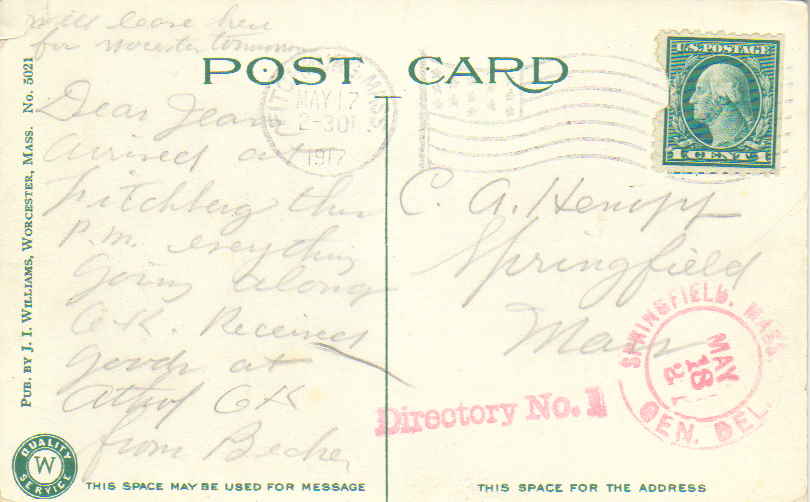 will leave here
for Worcester tomorrow
POST CARD
Dear Jean
arrived at
Fitchberg this
P.M. everything
going along
O.K. Received
goods at
Athol OK
from Becker
PUB. BY J. I. WILLIAMS, WORCESTER, MASS. No. 5021
MASS
MAY 17
2-30P
1917
U.S. POSTAGE
1 CENT 1
C. A. Hempp
Springfield
Mass
SPRINGFIELD, MASS.
MAY
18
GEN. DEL.
Directory No. 1
QUALITY
W
SERVICE
THIS SPACE MAY BE USED FOR MESSAGE
THIS SPACE FOR THE ADDRESS